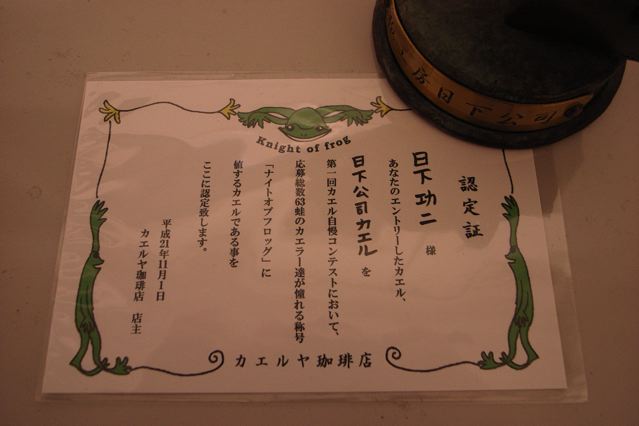 Knight of frog
認定証
日下功二 様
あなたのエントリーしたカエル、
日下公司カエル を
第一回カエル自慢コンテストにおいて、
応募総数63蛙のカエラー達が憧れる称号
「ナイトオブフロッグ」に
値するカエルである事を
ここに認定致します。
平成21年11月1日
カエルヤ珈琲店 店主
カエルヤ珈琲店
房日下公司